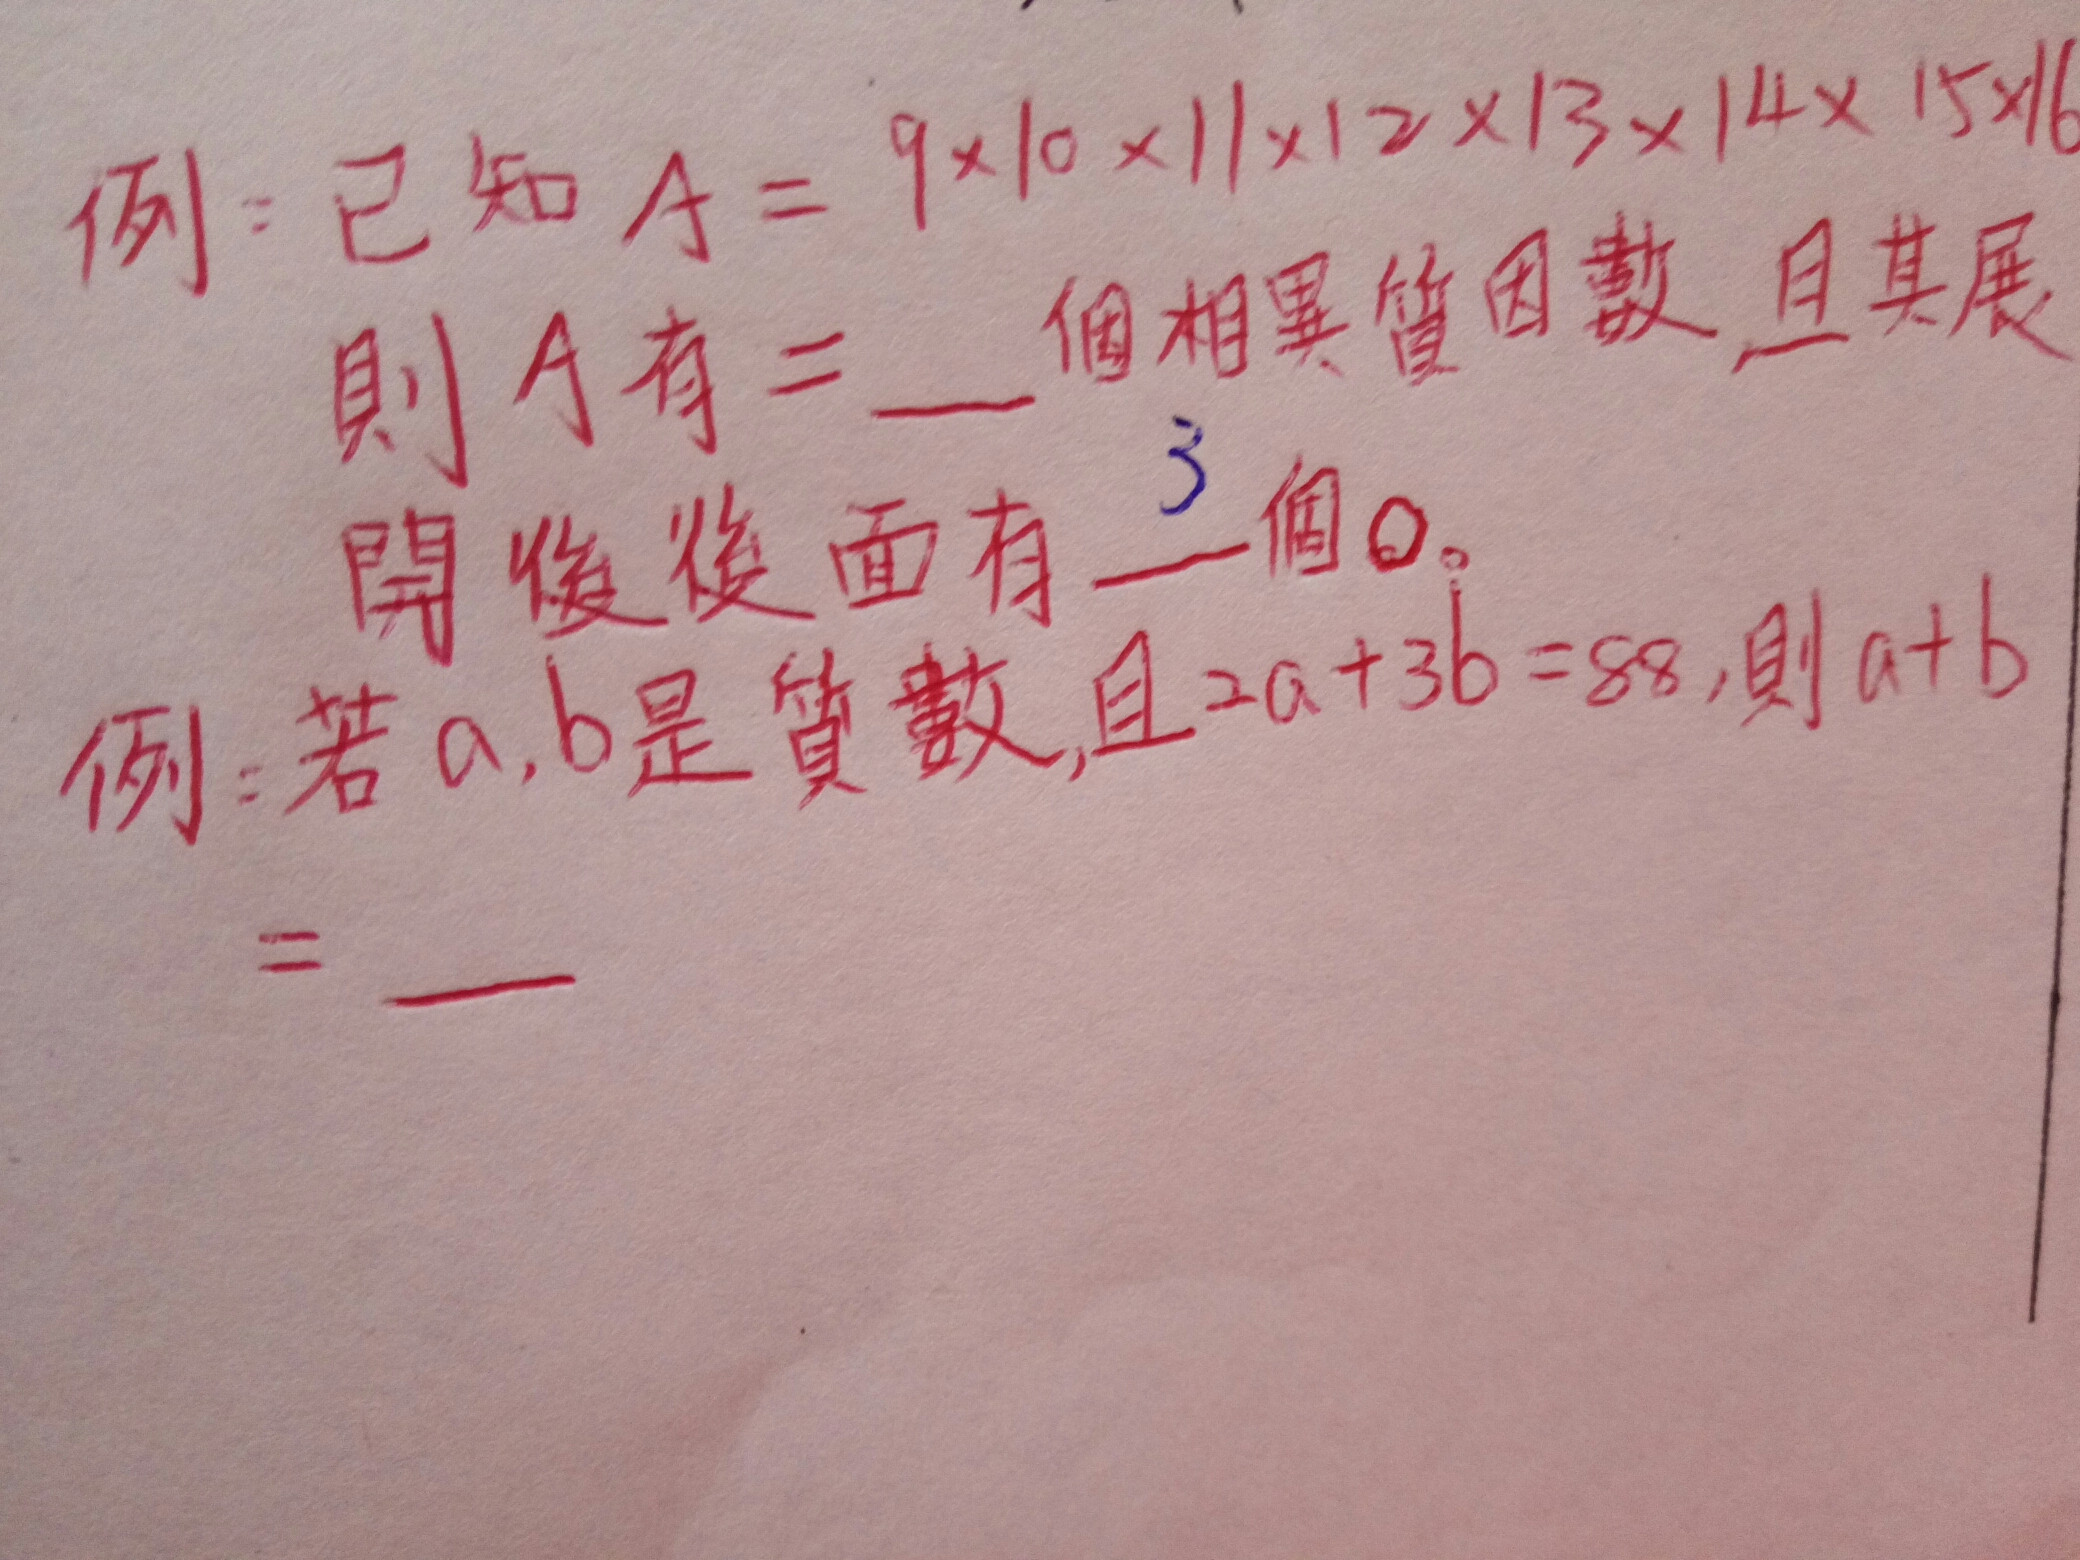 例:已知A=9×10×11×12×13×14×15×16
則A有=__個相異質因數,且其展
開後後面有3個0。
例:若a,b是質數,且2a+3b=88,則a+b
=__